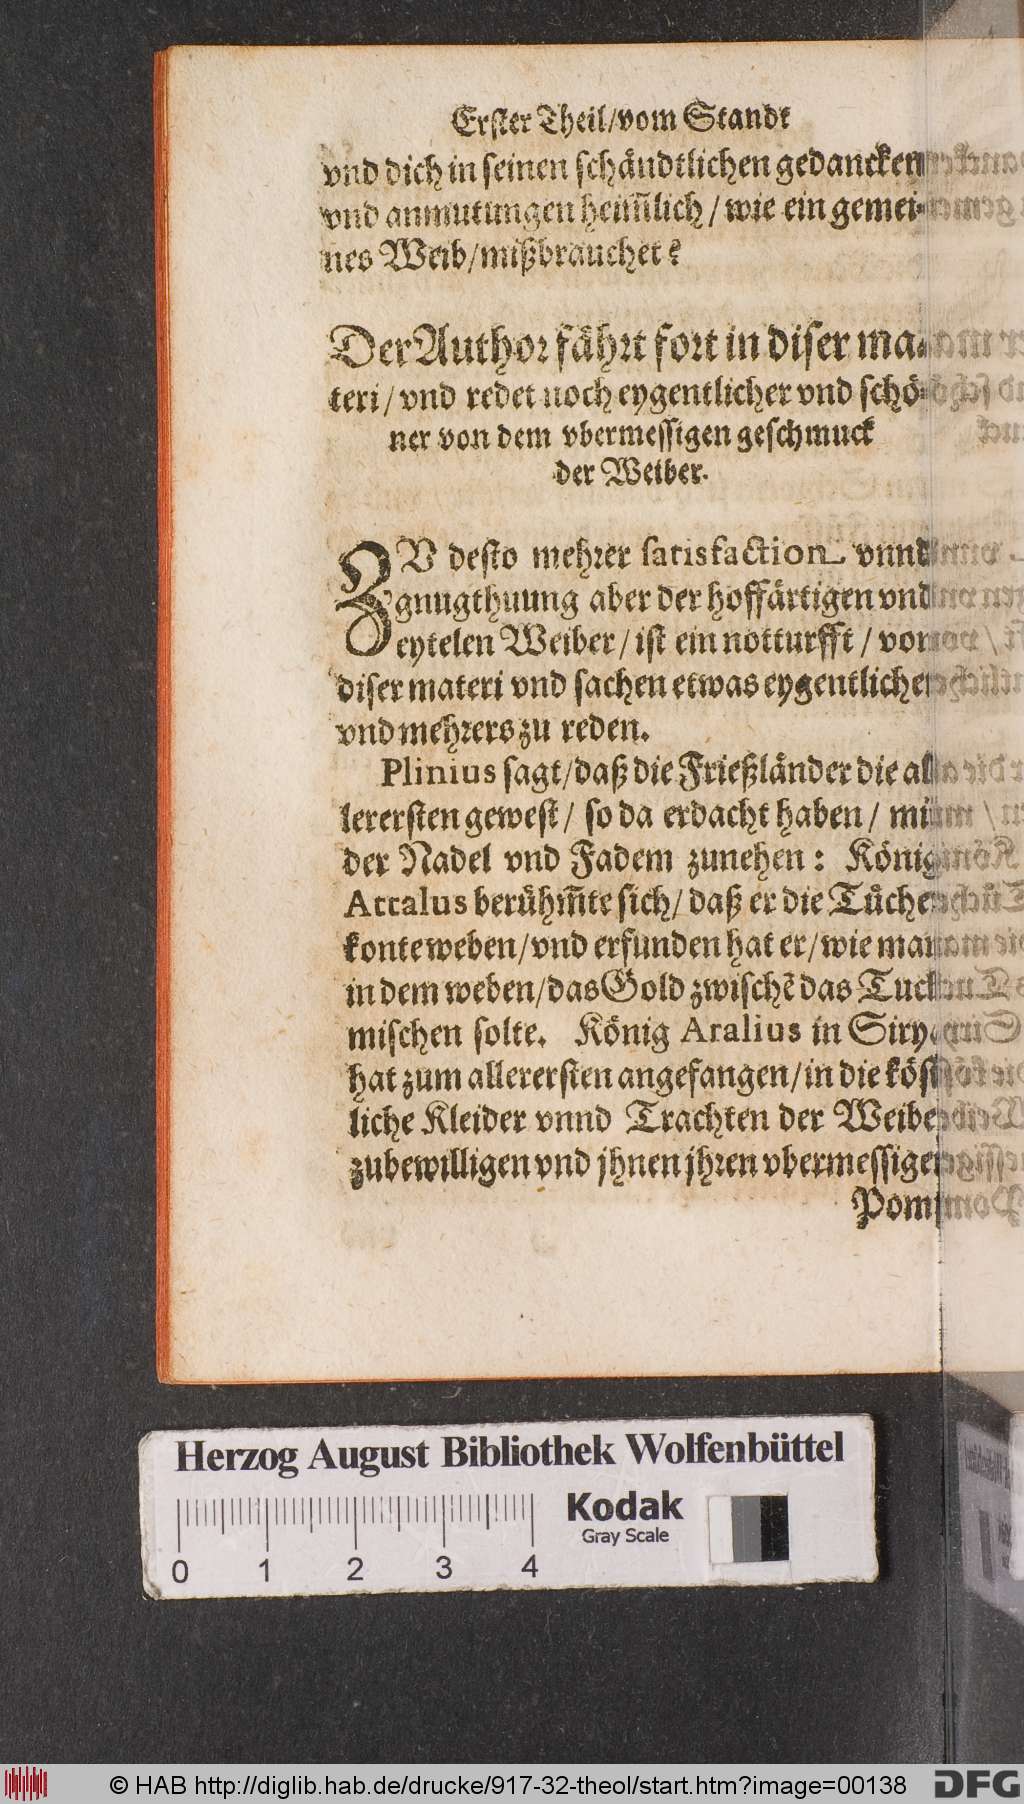 Erster Theil/vom Standt
vnd dich in seinen schändtlichen gedancken
vnd anmutungen heim̃lich / wie ein gemei-
nes Weib/mißbrauchet?
Der Author fährt fort in diser ma-
teri / vnd redet noch eygentlicher vnd schö-
ner von dem vbermessigen geschmuck
der Weiber.
ZV desto mehrer satisfaction vnnd
gnugthuung aber der hoffärtigen vnd
eytelen Weiber / ist ein notturfft / von
diser materi vnd sachen etwas eygentlicher
vnd mehrers zu reden.
Plinius sagt/daß die Frießländer die al-
lerersten gewest / so da erdacht haben / mit
der Nadel vnd Fadem zunehen: König
Attalus berühm̃te sich/ daß er die Tücher
konte weben/vnd erfunden hat er/wie man
in dem weben/das Gold zwischẽ das Tuch
mischen solte. König Aralius in Siry.
hat zum allerersten angefangen/in die köst-
liche Kleider vnnd Trachten der Weiber
zubewilligen vnd jhnen jhren vbermessigen
Pomp
Herzog August Bibliothek Wolfenbüttel
Kodak
Gray Scale
0 1 2 3 4
© HAB http://diglib.hab.de/drucke/917-32-theol/start.htm?image=00138
DFG